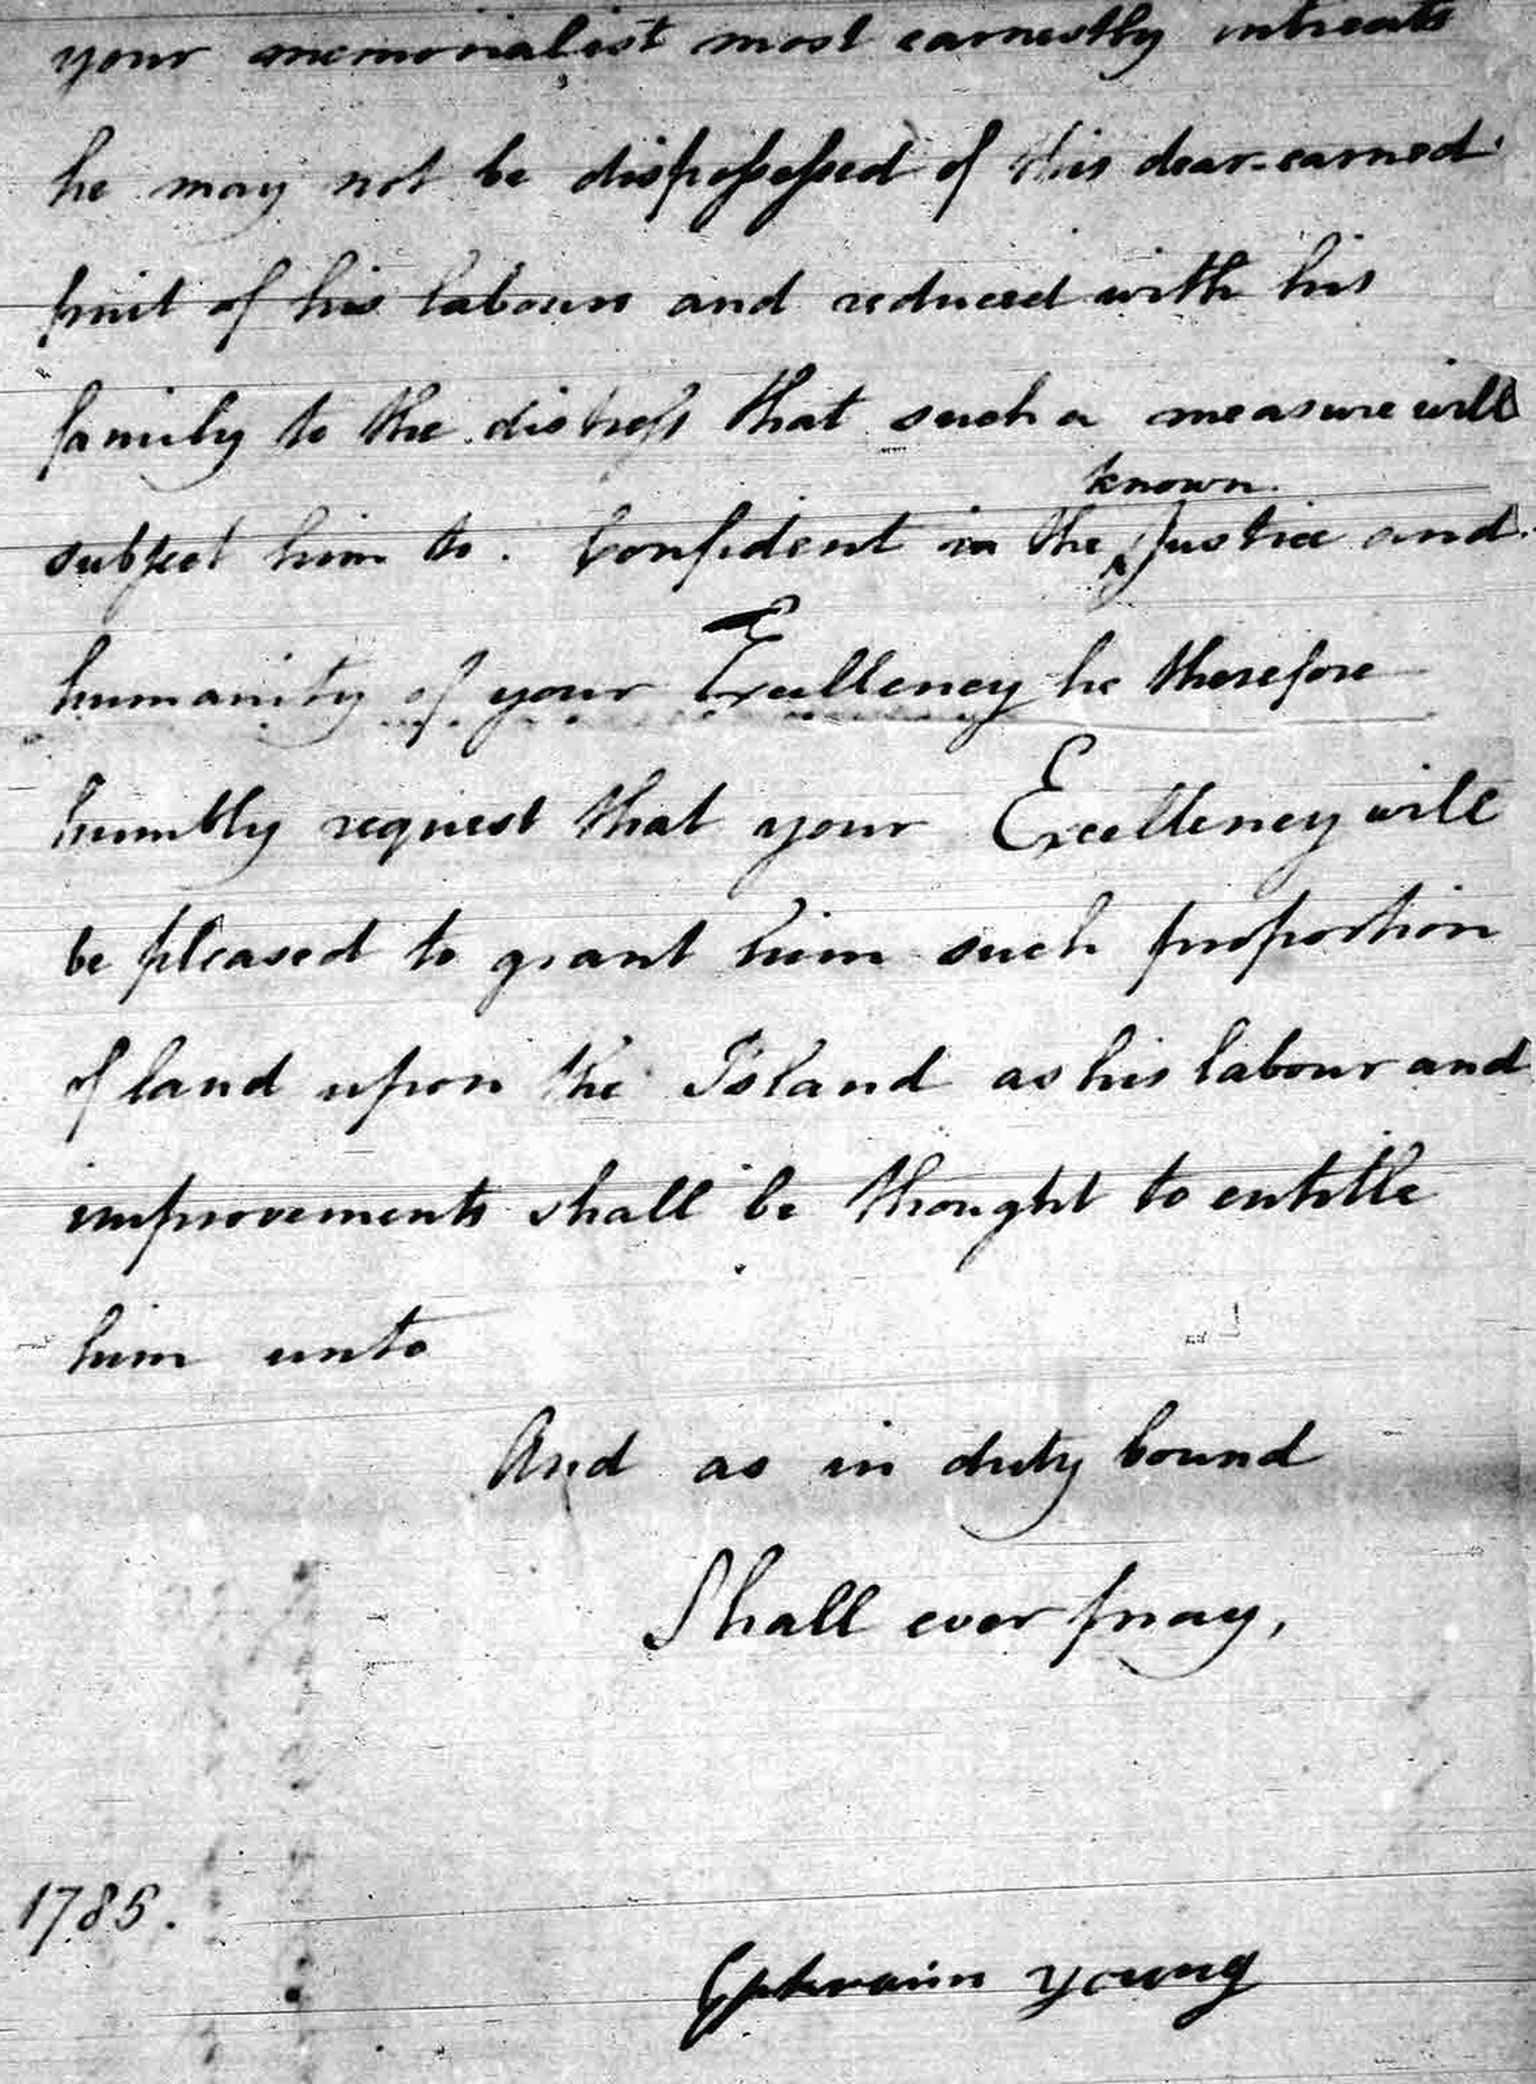 your memorialist most earnestly intreats
he may not be dispossessed of this dear-earned
fruit of his labours and reduced with his
family to the distress that such a measure will
known
subject him to. Confident in the Justice and
humanity of your Excellency he therefore
humbly request that your Excellency will
be pleased to grant him such proportion
of land upon the Island as his labour and
improvements shall be thought to entitle
him unto
And as in duty bound
Shall ever pray,
1785.
Ephraim Young